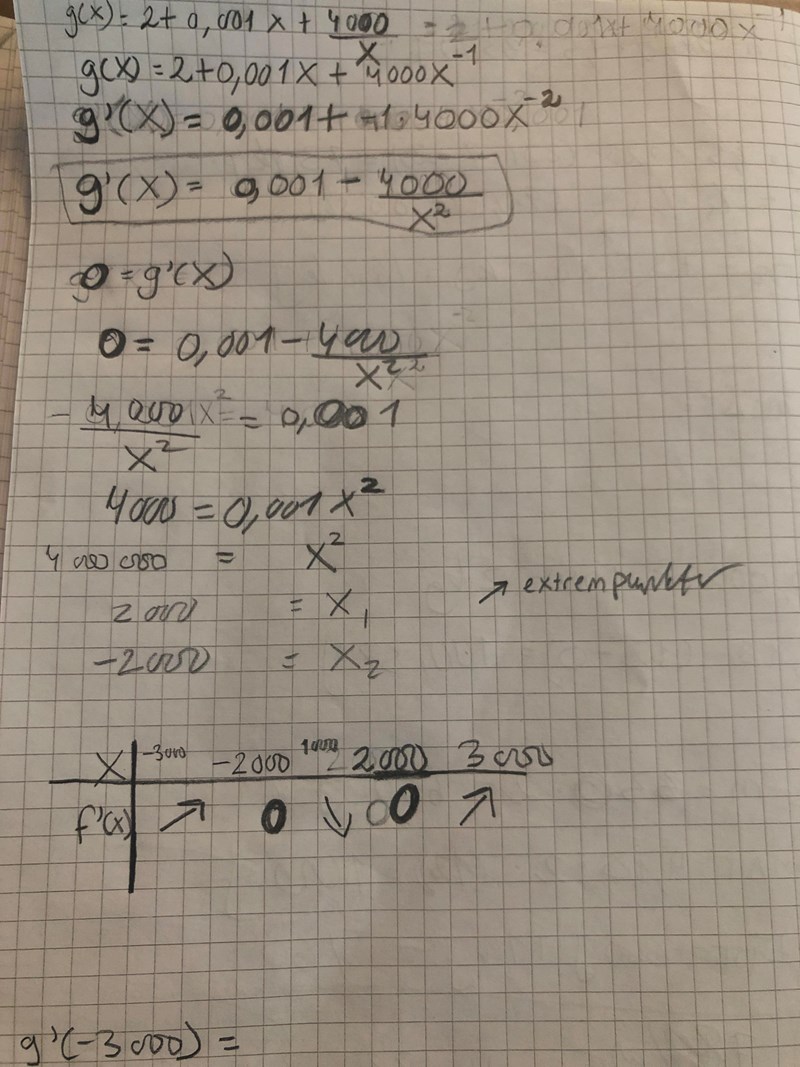 g(x) = 2 + 0,001x + 4000/x = 2 + 0,001x + 4000x⁻¹
g(x) = 2 + 0,001x + 4000x⁻¹
g'(x) = 0,001 + -1·4000x⁻²
g'(x) = 0,001 - 4000/x²
0 = g'(x)
0 = 0,001 - 4000/x²
- 4000/x² = 0,001
4000 = 0,001x²
4 000 000 = x²
→ extrempunkter
2000 = x₁
-2000 = x₂
x -3000 -2000 1000 2000 3000
f'(x) ↗ 0 ↘ 0 ↗
g'(-3000) =